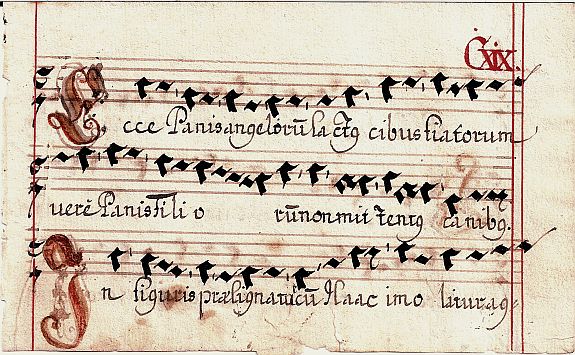 Cxix.
Ecce Panis angelorū factꝰ cibus fiatorum
verē Panis fili o rū non mit tentꝰ canibꝰ.
In figuris præsignatur cū Isaac imo litur ag-